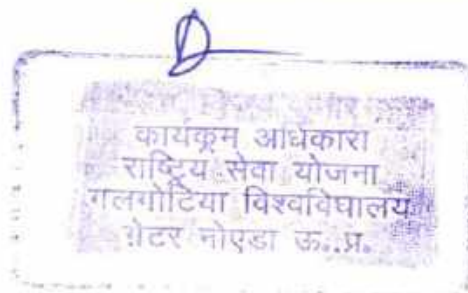 कुमार
कार्यकृम अधिकारा
राष्ट्रिय सेवा योजना
गलगोटिया विश्वविघालय
ग्रेटर नोएडा ऊ..प्र.